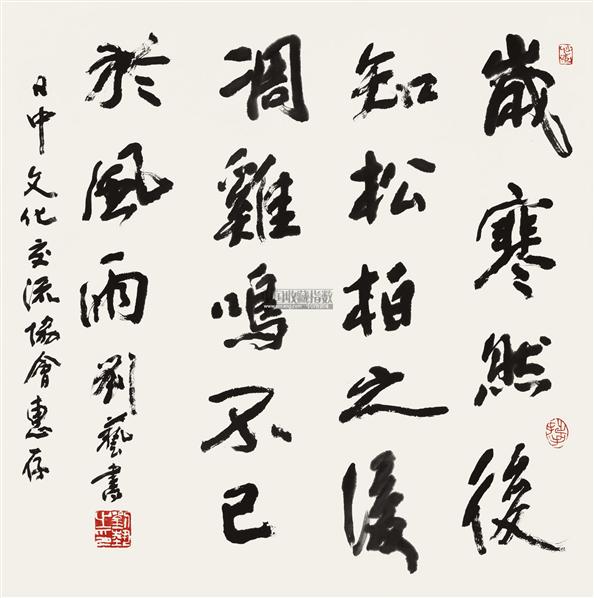 歲寒然後
知松柏之後
凋雞鳴不已
於風雨劉藝書
日中文化交流協會惠存
劉藝之印
收藏指数